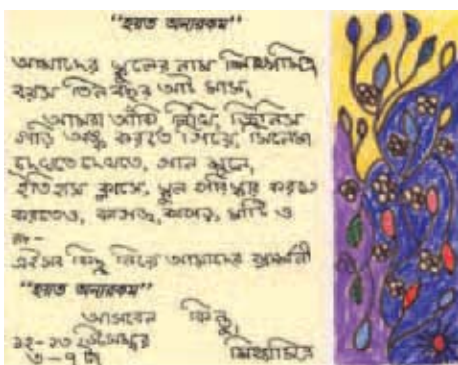 "হয়ত অন্যরকম"
আমাদের স্কুলের নাম শিক্ষামিত্র
বয়স তিন বছর আট মাস,
আমরা আঁকি লিখি, জিনিস
গড়ি অঙ্ক করতে গিয়ে, সিনেমা
দেখতে দেখতে, গান শুনে,
ইতিহাস ক্লাসে, স্কুল পরিষ্কার করতে
করতেও, কাগজ, কাপড়, মাটি ও
রং-
এইসব কিছু নিয়ে আমাদের প্রদর্শনী
"হয়ত অন্যরকম"
আসবেন কিন্তু,
১২-১৩ ডিসেম্বর
৩-৭ টা
শিক্ষামিত্র